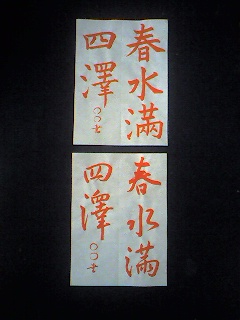 春水滿
四澤
〇〇七
春水滿
四澤
〇〇七